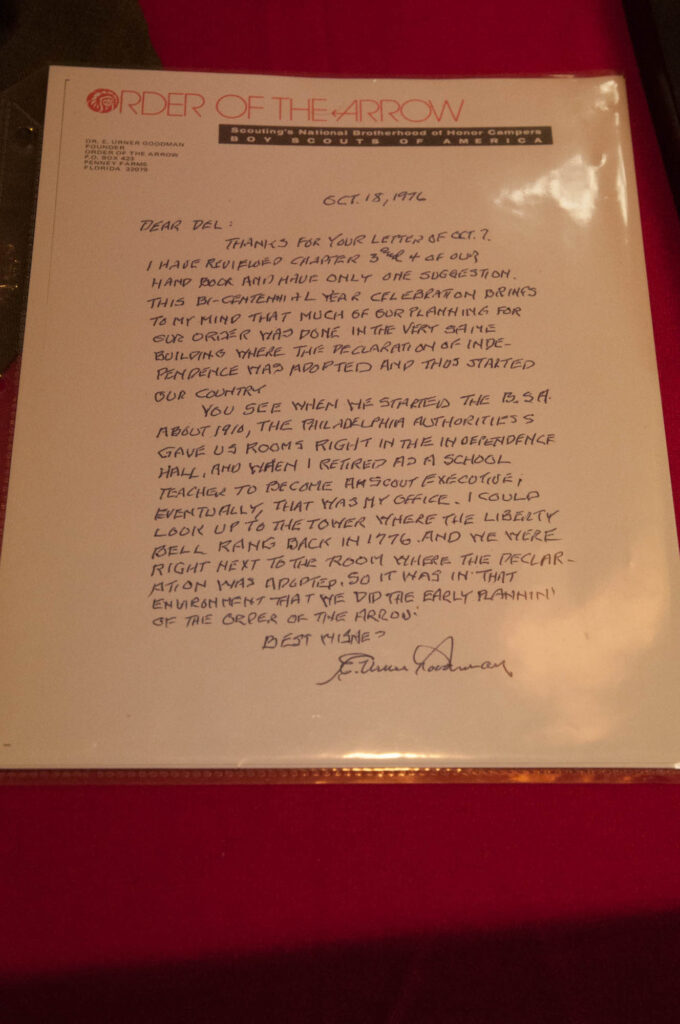 ORDER OF THE ARROW
Scouting's National Brotherhood of Honor Campers
BOY SCOUTS OF AMERICA
DR. E. URNER GOODMAN
FOUNDER
ORDER OF THE ARROW
P.O. BOX 423
PENNEY FARMS
FLORIDA 32079
OCT. 18, 1976
DEAR DEL:
THANKS FOR YOUR LETTER OF OCT. 7.
I HAVE REVIEWED CHAPTER 3 AND 4 OF OUR
HAND BOOK AND HAVE ONLY ONE SUGGESTION.
THIS BI-CENTENNIAL YEAR CELEBRATION BRINGS
TO MY MIND THAT MUCH OF OUR PLANNING FOR
OUR ORDER WAS DONE IN THE VERY SAME
BUILDING WHERE THE DECLARATION OF INDE-
PENDENCE WAS ADOPTED AND THUS STARTED
OUR COUNTRY
YOU SEE WHEN WE STARTED THE B.S.A.
ABOUT 1910, THE PHILADELPHIA AUTHORITIES
GAVE US ROOMS RIGHT IN THE INDEPENDENCE
HALL, AND WHEN I RETIRED AS A SCHOOL
TEACHER TO BECOME A SCOUT EXECUTIVE,
EVENTUALLY, THAT WAS MY OFFICE. I COULD
LOOK UP TO THE TOWER WHERE THE LIBERTY
BELL RANG BACK IN 1776 AND WE WERE
RIGHT NEXT TO THE ROOM WHERE THE DECLAR-
ATION WAS ADOPTED. SO IT WAS IN THAT
ENVIRONMENT THAT WE DID THE EARLY PLANNIN'
OF THE ORDER OF THE ARROW.
BEST WISHES
E. Urner Goodman